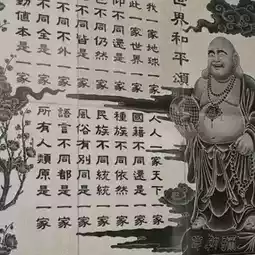 世界和平頌
我一家地球一家
人人一家天下一家
此一家世界一家
國籍不同還是一家
仰不同還是一家
種族不同依然一家
也不同仍然一家
色不同統統一家
不同皆是一家
風俗有別同是一家
不同不外一家
語言不同都是一家
不同全是一家
所有人類原是一家
動值本是一家